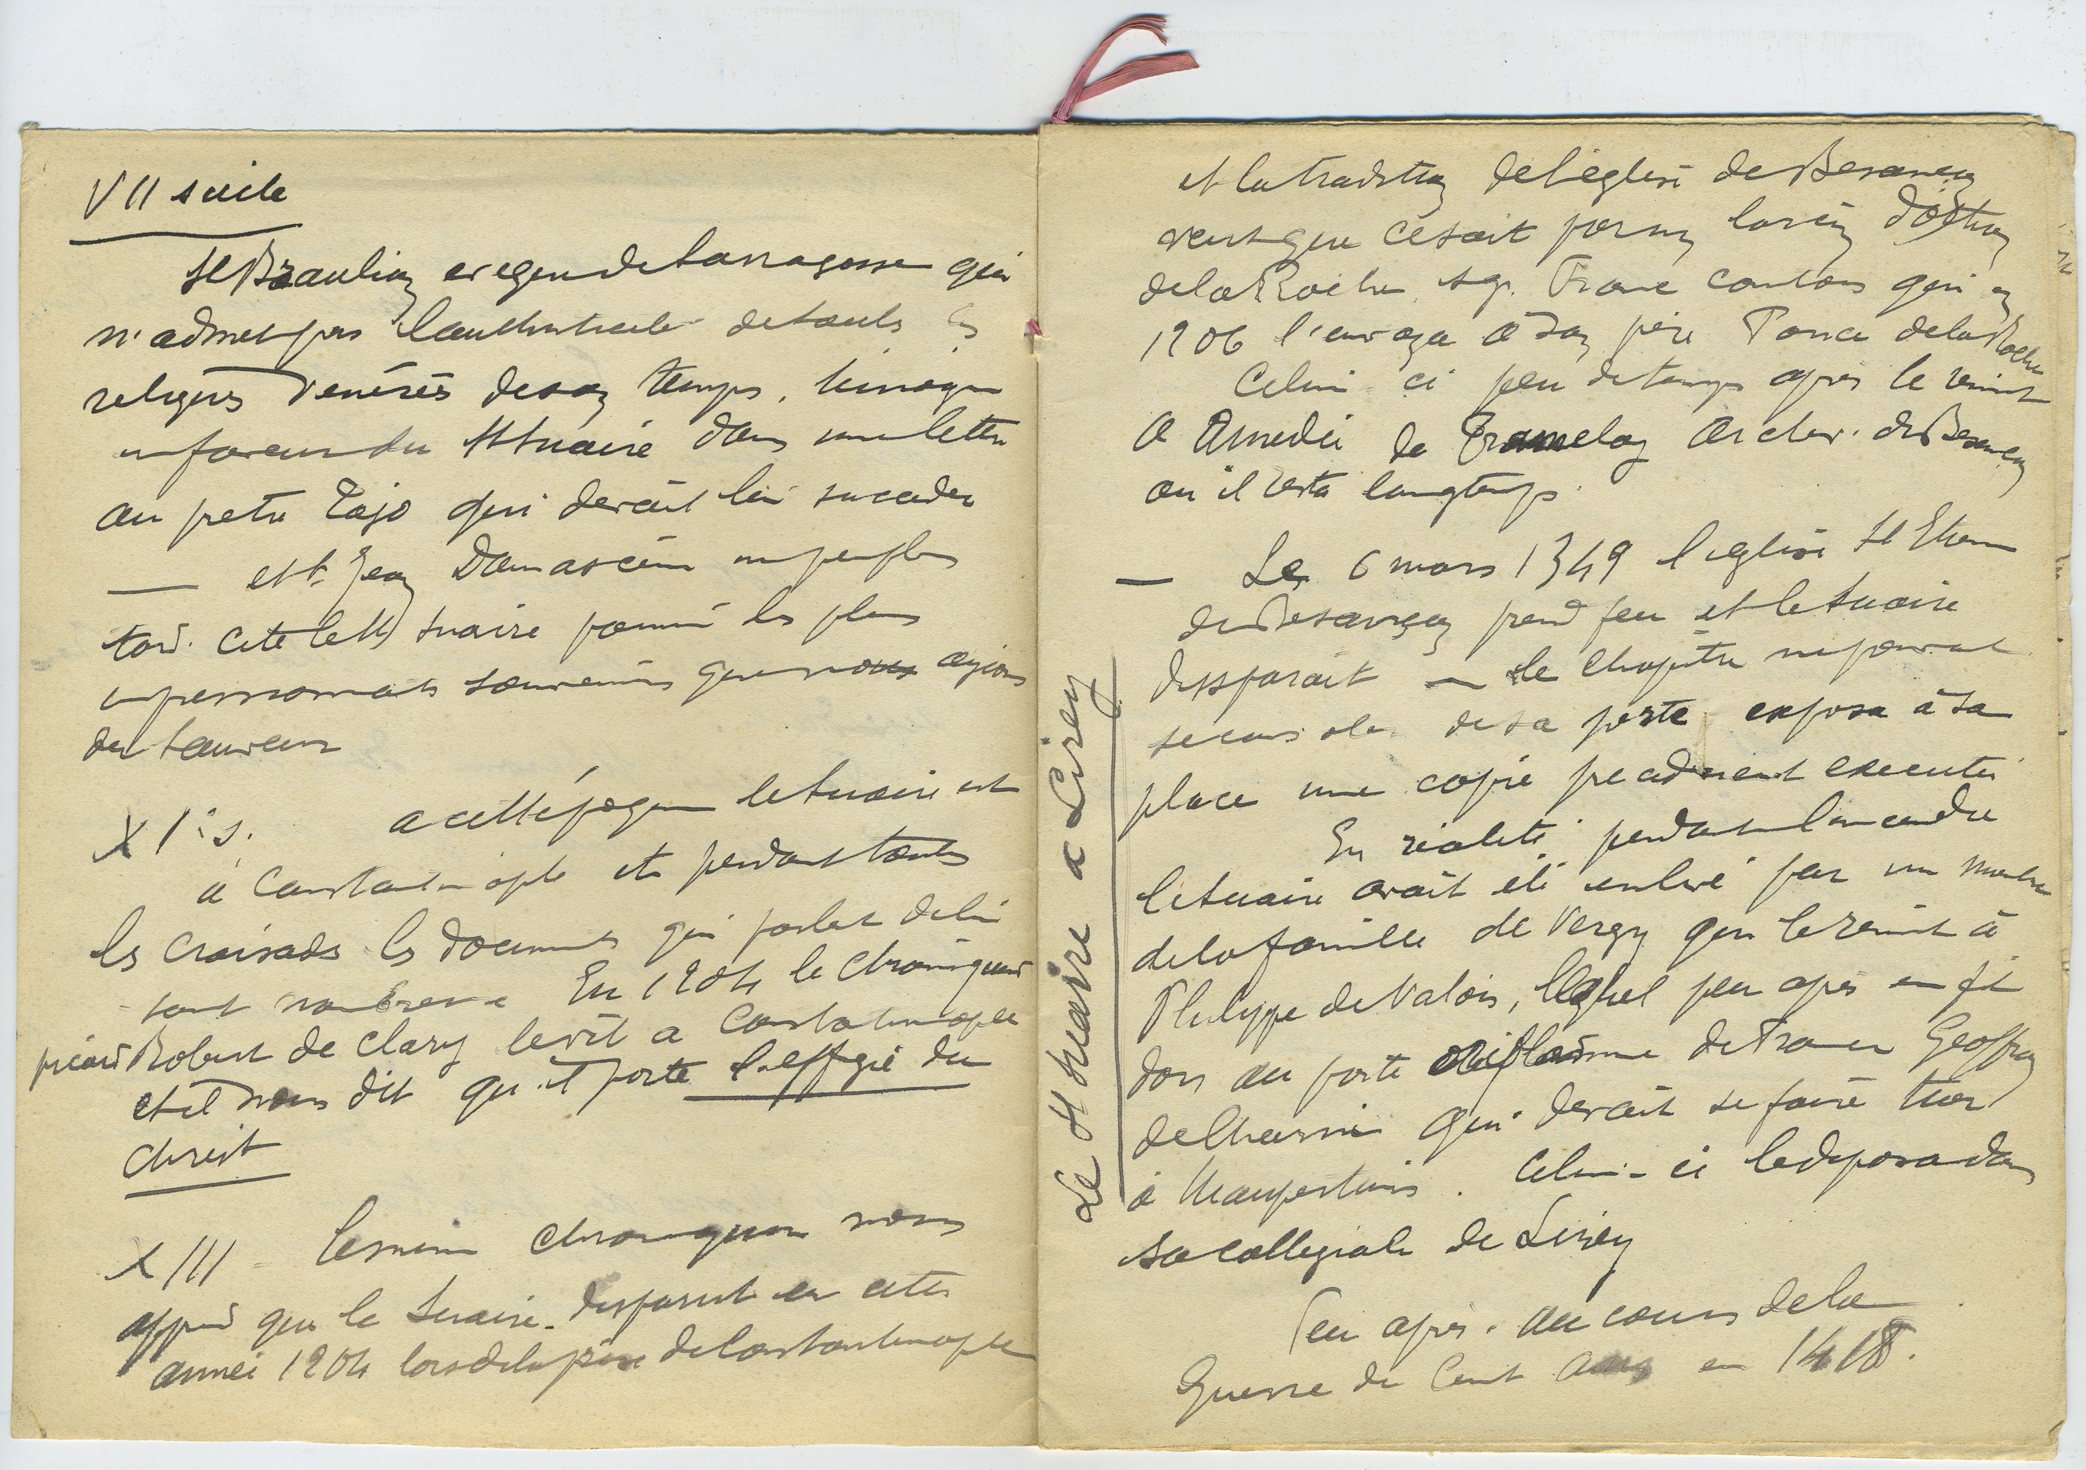 VII siècle
St Braulion evêque de Sarragosse qui
n'admet pas l'authenticité de toutes les
reliques vénérées de son temps, témoigne
en faveur du St Suaire dans une lettre
au pretre Tajo qui devait lui succeder
— et St Jean Damascène un peu plus
tard cite le St Suaire parmi les plus
impressionants souvenirs que nous ayions
du Sauveur
XIe s. a cette époque le Suaire est
à Constantinople et pendant toutes
les croisades les documents qui parlent de lui
sont nombreux En 1204 le chroniqueur
picard Robert de Clary le vit a Constantinople
et il nous dit qu'il porte l'effigie du
Christ
XIII - Le même chroniqueur nous
apprend que le Suaire disparut en cette
année 1204 lors de la prise de Constantinople
et la tradition de l'église de Besançon
veut que c'était parmi le butin d'Othon
de la Roche sgr. Franc comtois qui en
1206 l'envoya à son père Ponce de la Roche
Celui-ci peu de temps après le remit
a Amédée de Tramelay Archev. de Besançon
ou il resta longtemps.
— Le 6 mars 1349 l'église St Etienne
de Besançon prend feu et le Suaire
disparait — le Chapitre ne pouvant
se consoler de sa perte exposa à sa
place une copie exécutée
En réalité pendant l'incendie
le Suaire avait été enlevé par un membre
de la famille de Vergy qui le remit à
Philippe de Valois, lequel peu après en fit
don au porte oriflamme de France Geoffroy
de Charni qui devait se faire tuer
à Maupertuis. Celui-ci le déposa dans
sa collégiale de Lirey
Peu après. Au cours de la
Guerre de Cent Ans en 1418.
Le St Suaire a Lirey